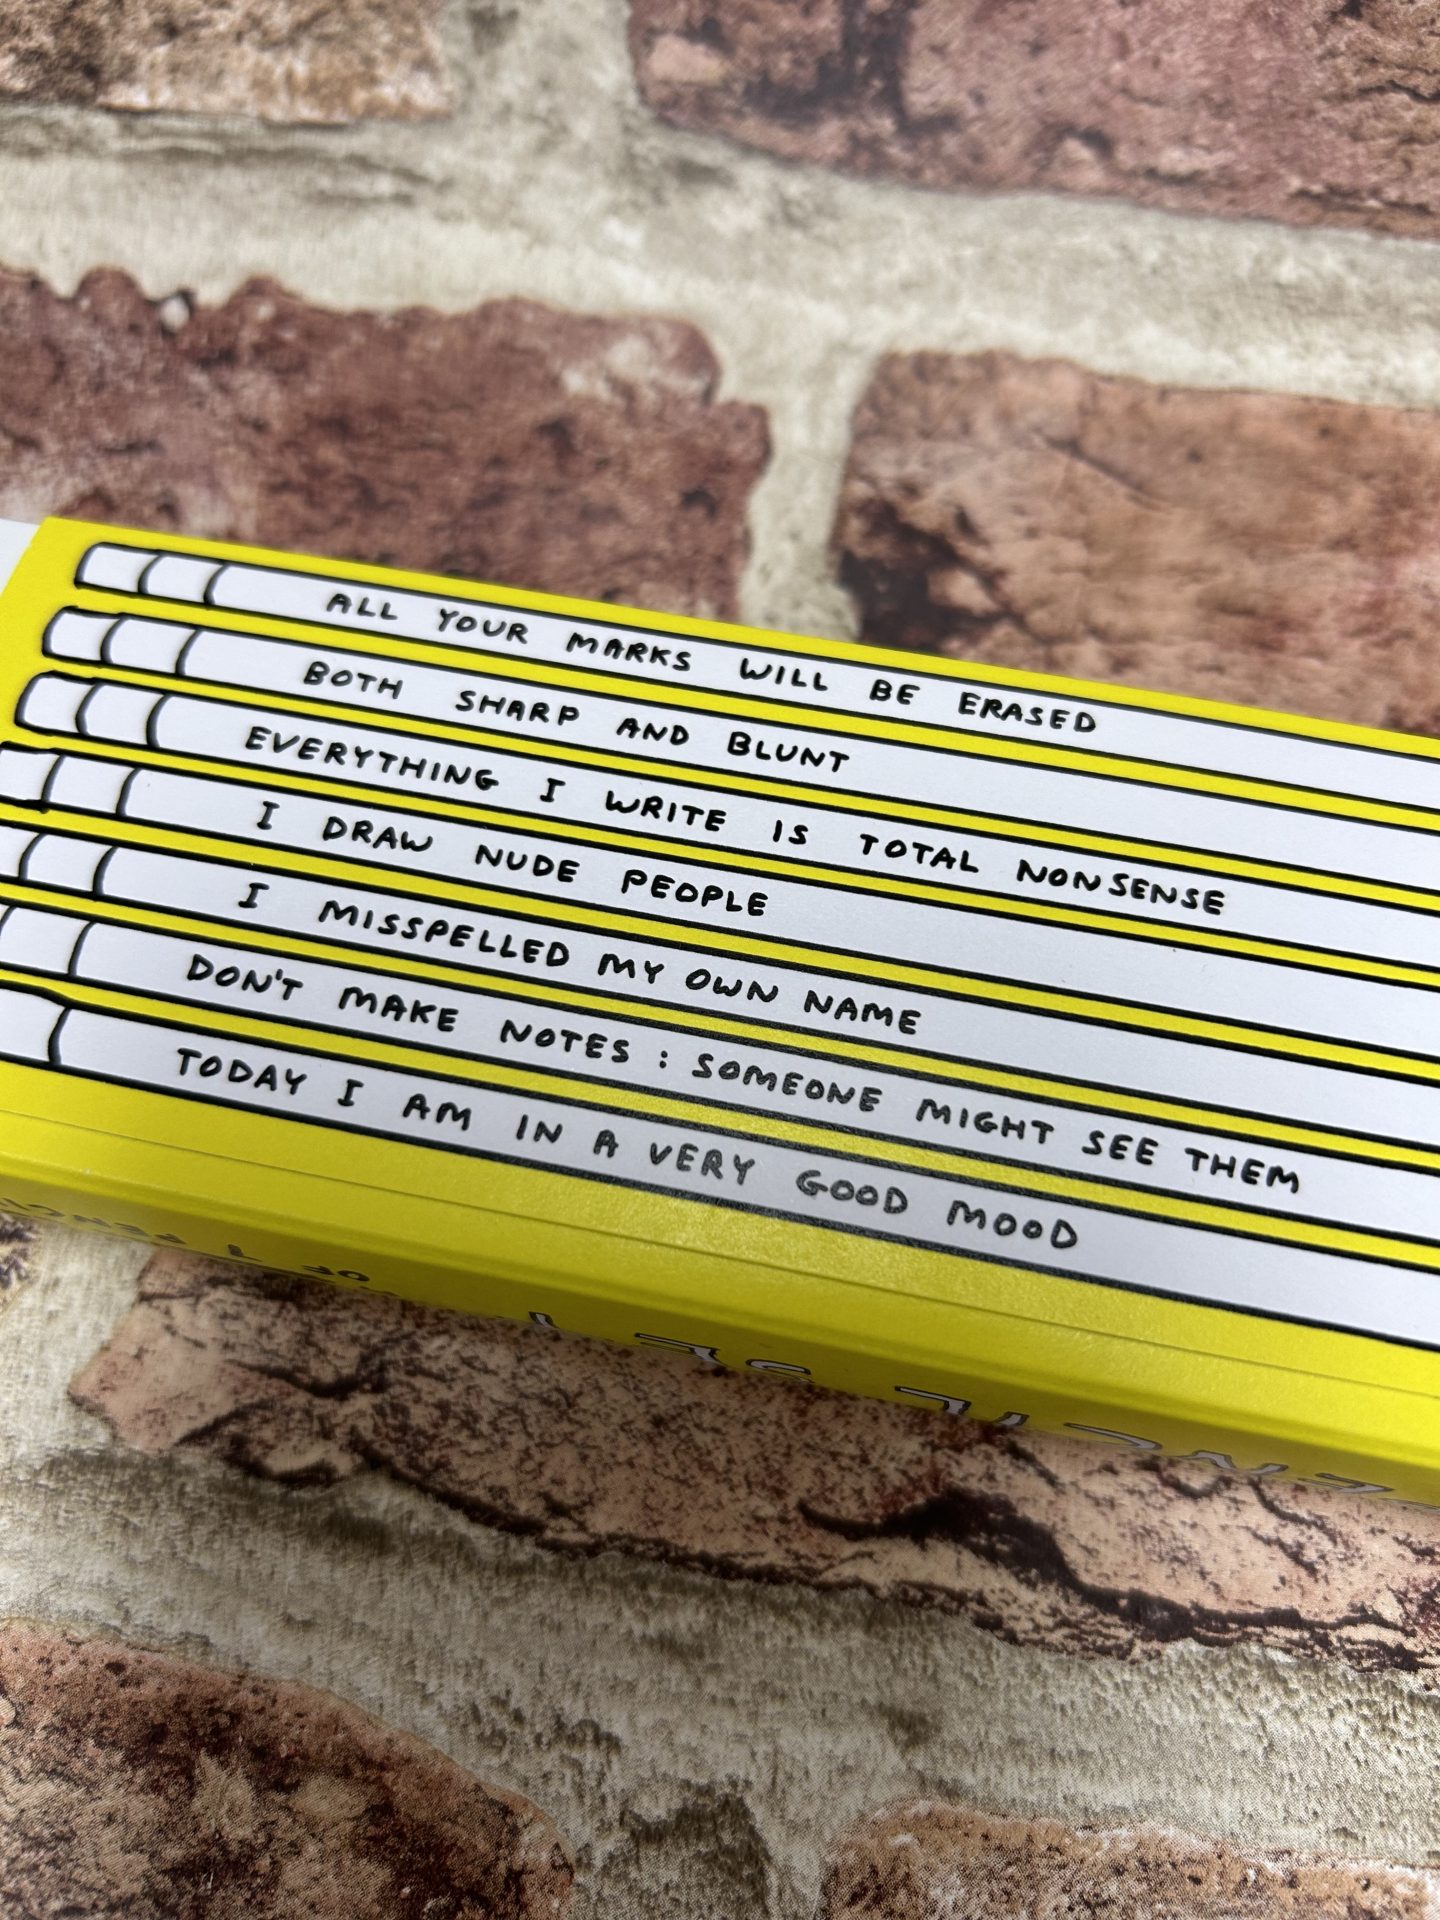 ALL YOUR MARKS WILL BE ERASED
BOTH SHARP AND BLUNT
EVERYTHING I WRITE IS TOTAL NONSENSE
I DRAW NUDE PEOPLE
I MISSPELLED MY OWN NAME
DON'T MAKE NOTES : SOMEONE MIGHT SEE THEM
TODAY I AM IN A VERY GOOD MOOD
OF 7